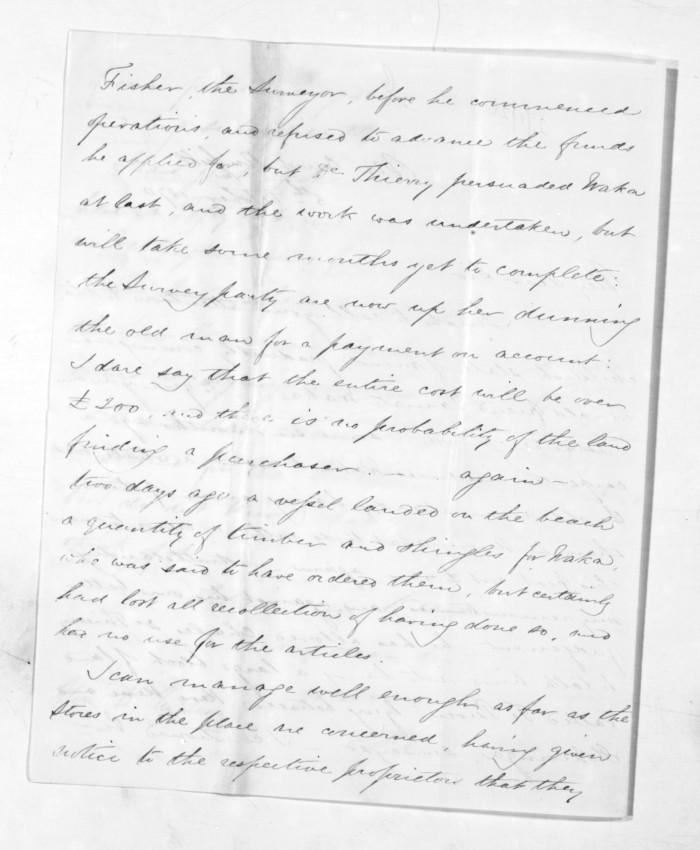 Fisher, the Surveyor, before he commenced
operations, and refused to advance the funds
he applied for, but De Thierry persuaded Waka
at last, and the work was undertaken, but
will take some months yet to complete:
the Survey party are now up her dunning
the old man for a payment on account:
I dare say that the entire cost will be over
£200, and there is no probability of the land
finding a purchaser. — again —
two days ago a vessel landed on the beach
a quantity of timber and shingles for Waka,
who was said to have ordered them, but certainly
had lost all recollection of having done so, and
has no use for the articles.
I can manage well enough as far as the
Stores in the place are concerned, having given
notice to the respective proprietors that they